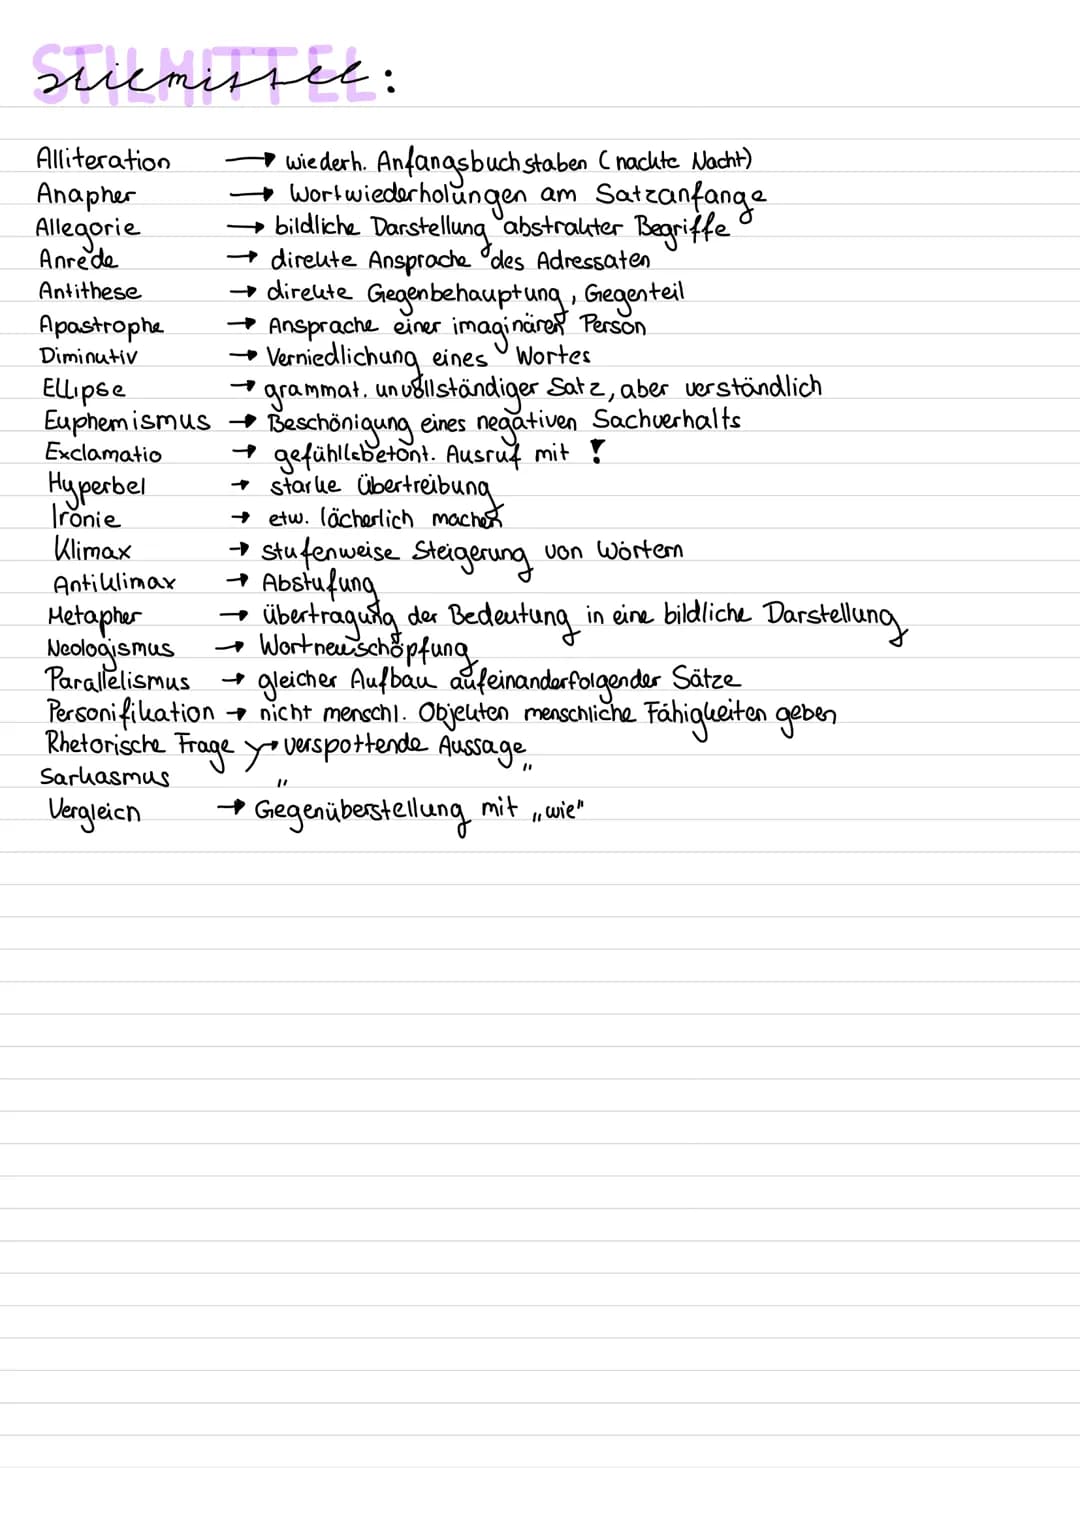 STILMITTEL
stilmittel:
Alliteration → wiederh. Anfangsbuchstaben (nackte Nacht)
Anapher → Wortwiederholungen am Satzanfange
Allegorie → bildliche Darstellung abstrakter Begriffe
Anrede → direkte Ansprache des Adressaten
Antithese → direkte Gegenbehauptung, Gegenteil
Apastrophe → Ansprache einer imaginären Person
Diminutiv → Verniedlichung eines Wortes
Ellipse → grammat. unvollständiger Satz, aber verständlich
Euphemismus → Beschönigung eines negativen Sachverhalts
Exclamatio → gefühllsbetont. Ausruf mit !
Hyperbel → starke Übertreibung
Ironie → etw. lächerlich machen
Klimax → stufenweise Steigerung von Wörtern
Antiklimax → Abstufung
Metapher → übertragung der Bedeutung in eine bildliche Darstellung
Neologismus → Wortneuschöpfung
Parallelismus → gleicher Aufbau aufeinanderfolgender Sätze
Personifikation → nicht menschl. Objekten menschliche Fähigkeiten geben
Rhetorische Frage → verspottende Aussage „
Sarkasmus "
Vergleich → Gegenüberstellung mit „wie"